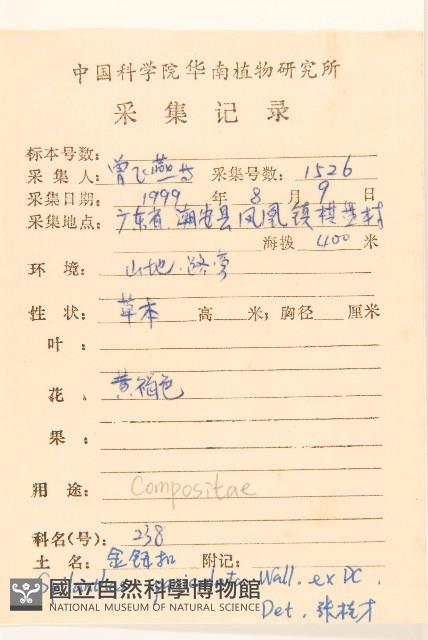 中国科学院华南植物研究所
采集记录
标本号数:
采集人: 曾飞燕等 采集号数: 1526
采集日期: 1999 年 8 月 9 日
采集地点: 广东省潮安县凤凰镇棋盘村
海拨 400 米
环境: 山地.路旁
性状: 草本 高 米; 胸径 厘米
叶:
花: 黄褐色
果:
用途: Compositae
科名(号): 238
土名: 金钮扣 附记:
paniculata Wall. ex DC.
國立自然科學博物館
NATIONAL MUSEUM OF NATURAL SCIENCE
Det. 张桂才